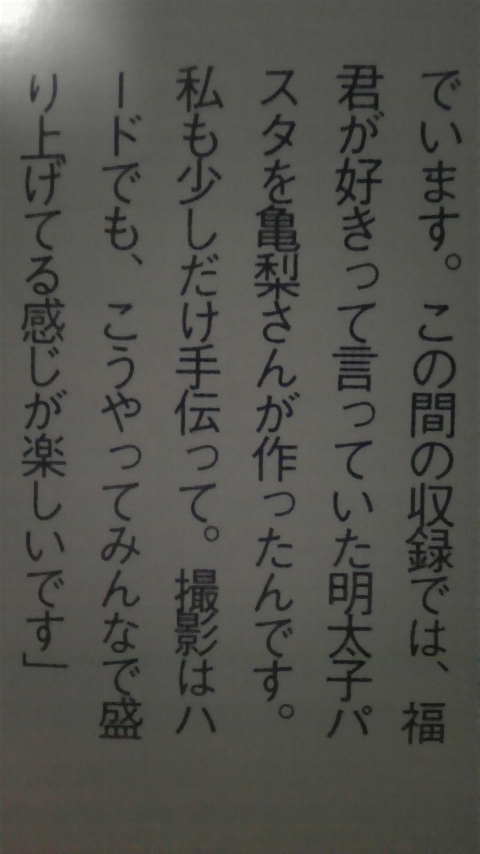 でいます。この間の収録では、福
君が好きって言っていた明太子パ
スタを亀梨さんが作ったんです。
私も少しだけ手伝って。撮影はハ
ードでも、こうやってみんなで盛
り上げてる感じが楽しいです」